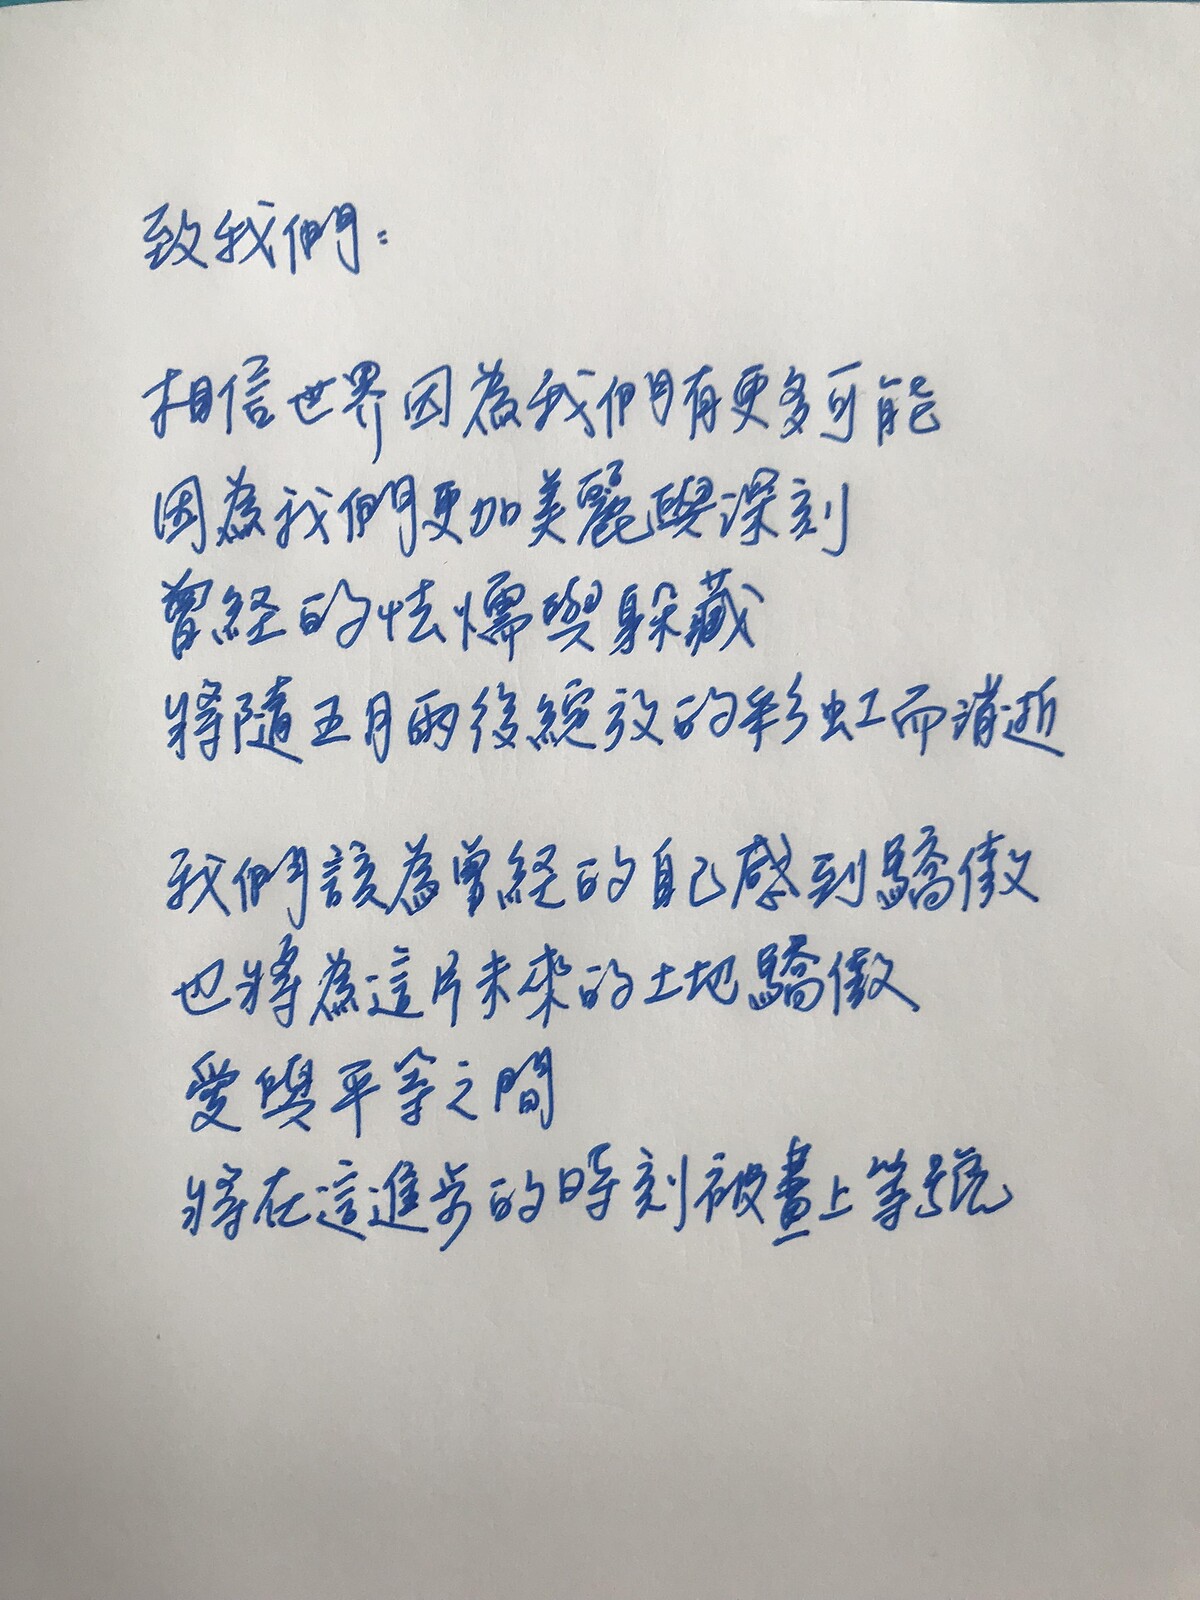 致我們：
相信世界因為我們有更多可能
因為我們更加美麗與深刻
曾経的怯懦與躲藏
將隨五月雨後綻放的彩虹而消逝
我們該為曾経的自己感到驕傲
也將為這片未來的土地驕傲
愛與平等之間
將在這進步的時刻被畫上等號